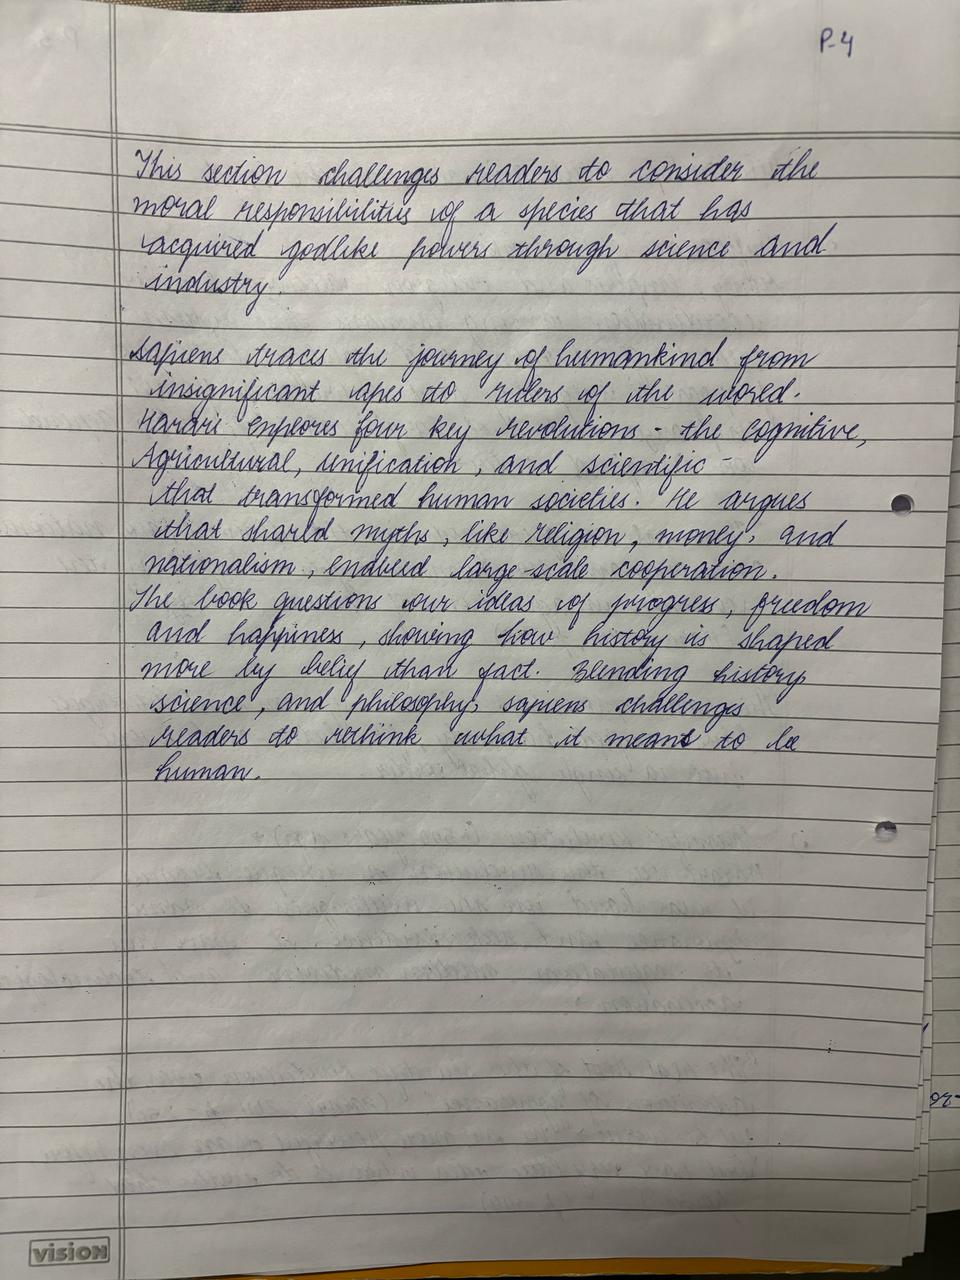 P-4
This section challenges readers to consider the
moral responsibilities of a species that has
acquired godlike powers through science and
industry.
Sapiens traces the journey of humankind from
insignificant apes to rulers of the world.
Harari explores four key revolutions - the cognitive,
Agricultural, unification, and scientific -
that transformed human societies. He argues
that shared myths, like religion, money, and
nationalism, enabled large-scale cooperation.
The book questions our ideas of progress, freedom
and happiness, showing how history is shaped
more by belief than fact. Blending history,
science, and philosophy, sapiens challenges
readers to rethink what it means to be
human.
vision